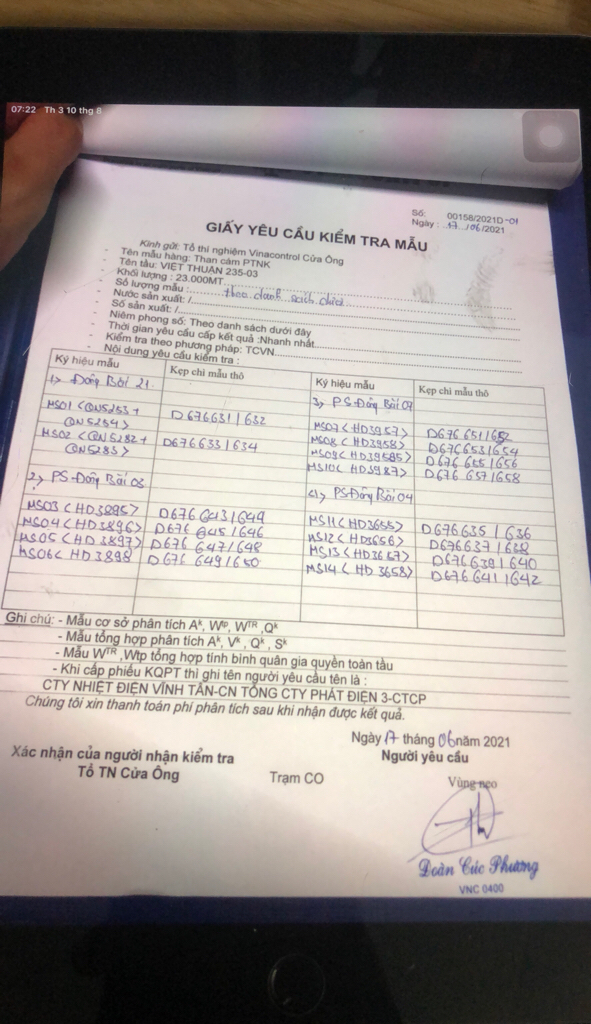 07:22 Th 3 10 thg 8
Số: 00158/2021D-01
Ngày: 17/06/2021
GIẤY YÊU CẦU KIỂM TRA MẪU
Kính gửi: Tổ thí nghiệm Vinacontrol Cửa Ông
- Tên mẫu hàng: Than cám PTNK
- Tên tàu: VIỆT THUẬN 235-03
- Khối lượng : 23.000MT
- Số lượng mẫu : theo danh sách dưới
- Nước sản xuất: /
- Số sản xuất: /
- Niêm phong số: Theo danh sách dưới đây
- Thời gian yêu cầu cấp kết quả :Nhanh nhất
- Kiểm tra theo phương pháp: TCVN
- Nội dung yêu cầu kiểm tra :
Ký hiệu mẫu Kẹp chì mẫu thô
1, Đông Bãi 21
MS01 <QN5253 + QN5254> D676631/632
MS02 <QN5282 + QN5283> D676633/634
2, PS-Đông Bãi 03
MS03 <HD3895> D676643/644
MS04 <HD3896> D676645/646
MS05 <HD3897> D676647/648
MS06 <HD3898 D676649/650
Ký hiệu mẫu Kẹp chì mẫu thô
3, PS Đông Bãi 07
MS07 <HD3957> D676651/652
MS08 <HD3958> D676653/654
MS09 <HD39585> D676655/656
MS10 <HD3987> D676657/658
4, PS-Đông Bãi 04
MS11 <HD3655> D676635/636
MS12 <HD3656> D676637/638
MS13 <HD3657> D676639/640
MS14 <HD3658> D676641/642
Ghi chú: - Mẫu cơ sở phân tích Aᵏ, Wᵗᵖ, Wᵀᴿ, Qᵏ
- Mẫu tổng hợp phân tích Aᵏ, Vᵏ, Qᵏ, Sᵏ
- Mẫu Wᵀᴿ ,Wtp tổng hợp tính bình quân gia quyền toàn tầu
- Khi cấp phiếu KQPT thì ghi tên người yêu cầu tên là :
CTY NHIỆT ĐIỆN VĨNH TÂN-CN TỔNG CTY PHÁT ĐIỆN 3-CTCP
Chúng tôi xin thanh toán phí phân tích sau khi nhận được kết quả.
Ngày 17 tháng 06 năm 2021
Xác nhận của người nhận kiểm tra
Tổ TN Cửa Ông
Trạm CO
Người yêu cầu
Vùng neo
Đoàn Cúc Phương
VNC 0400